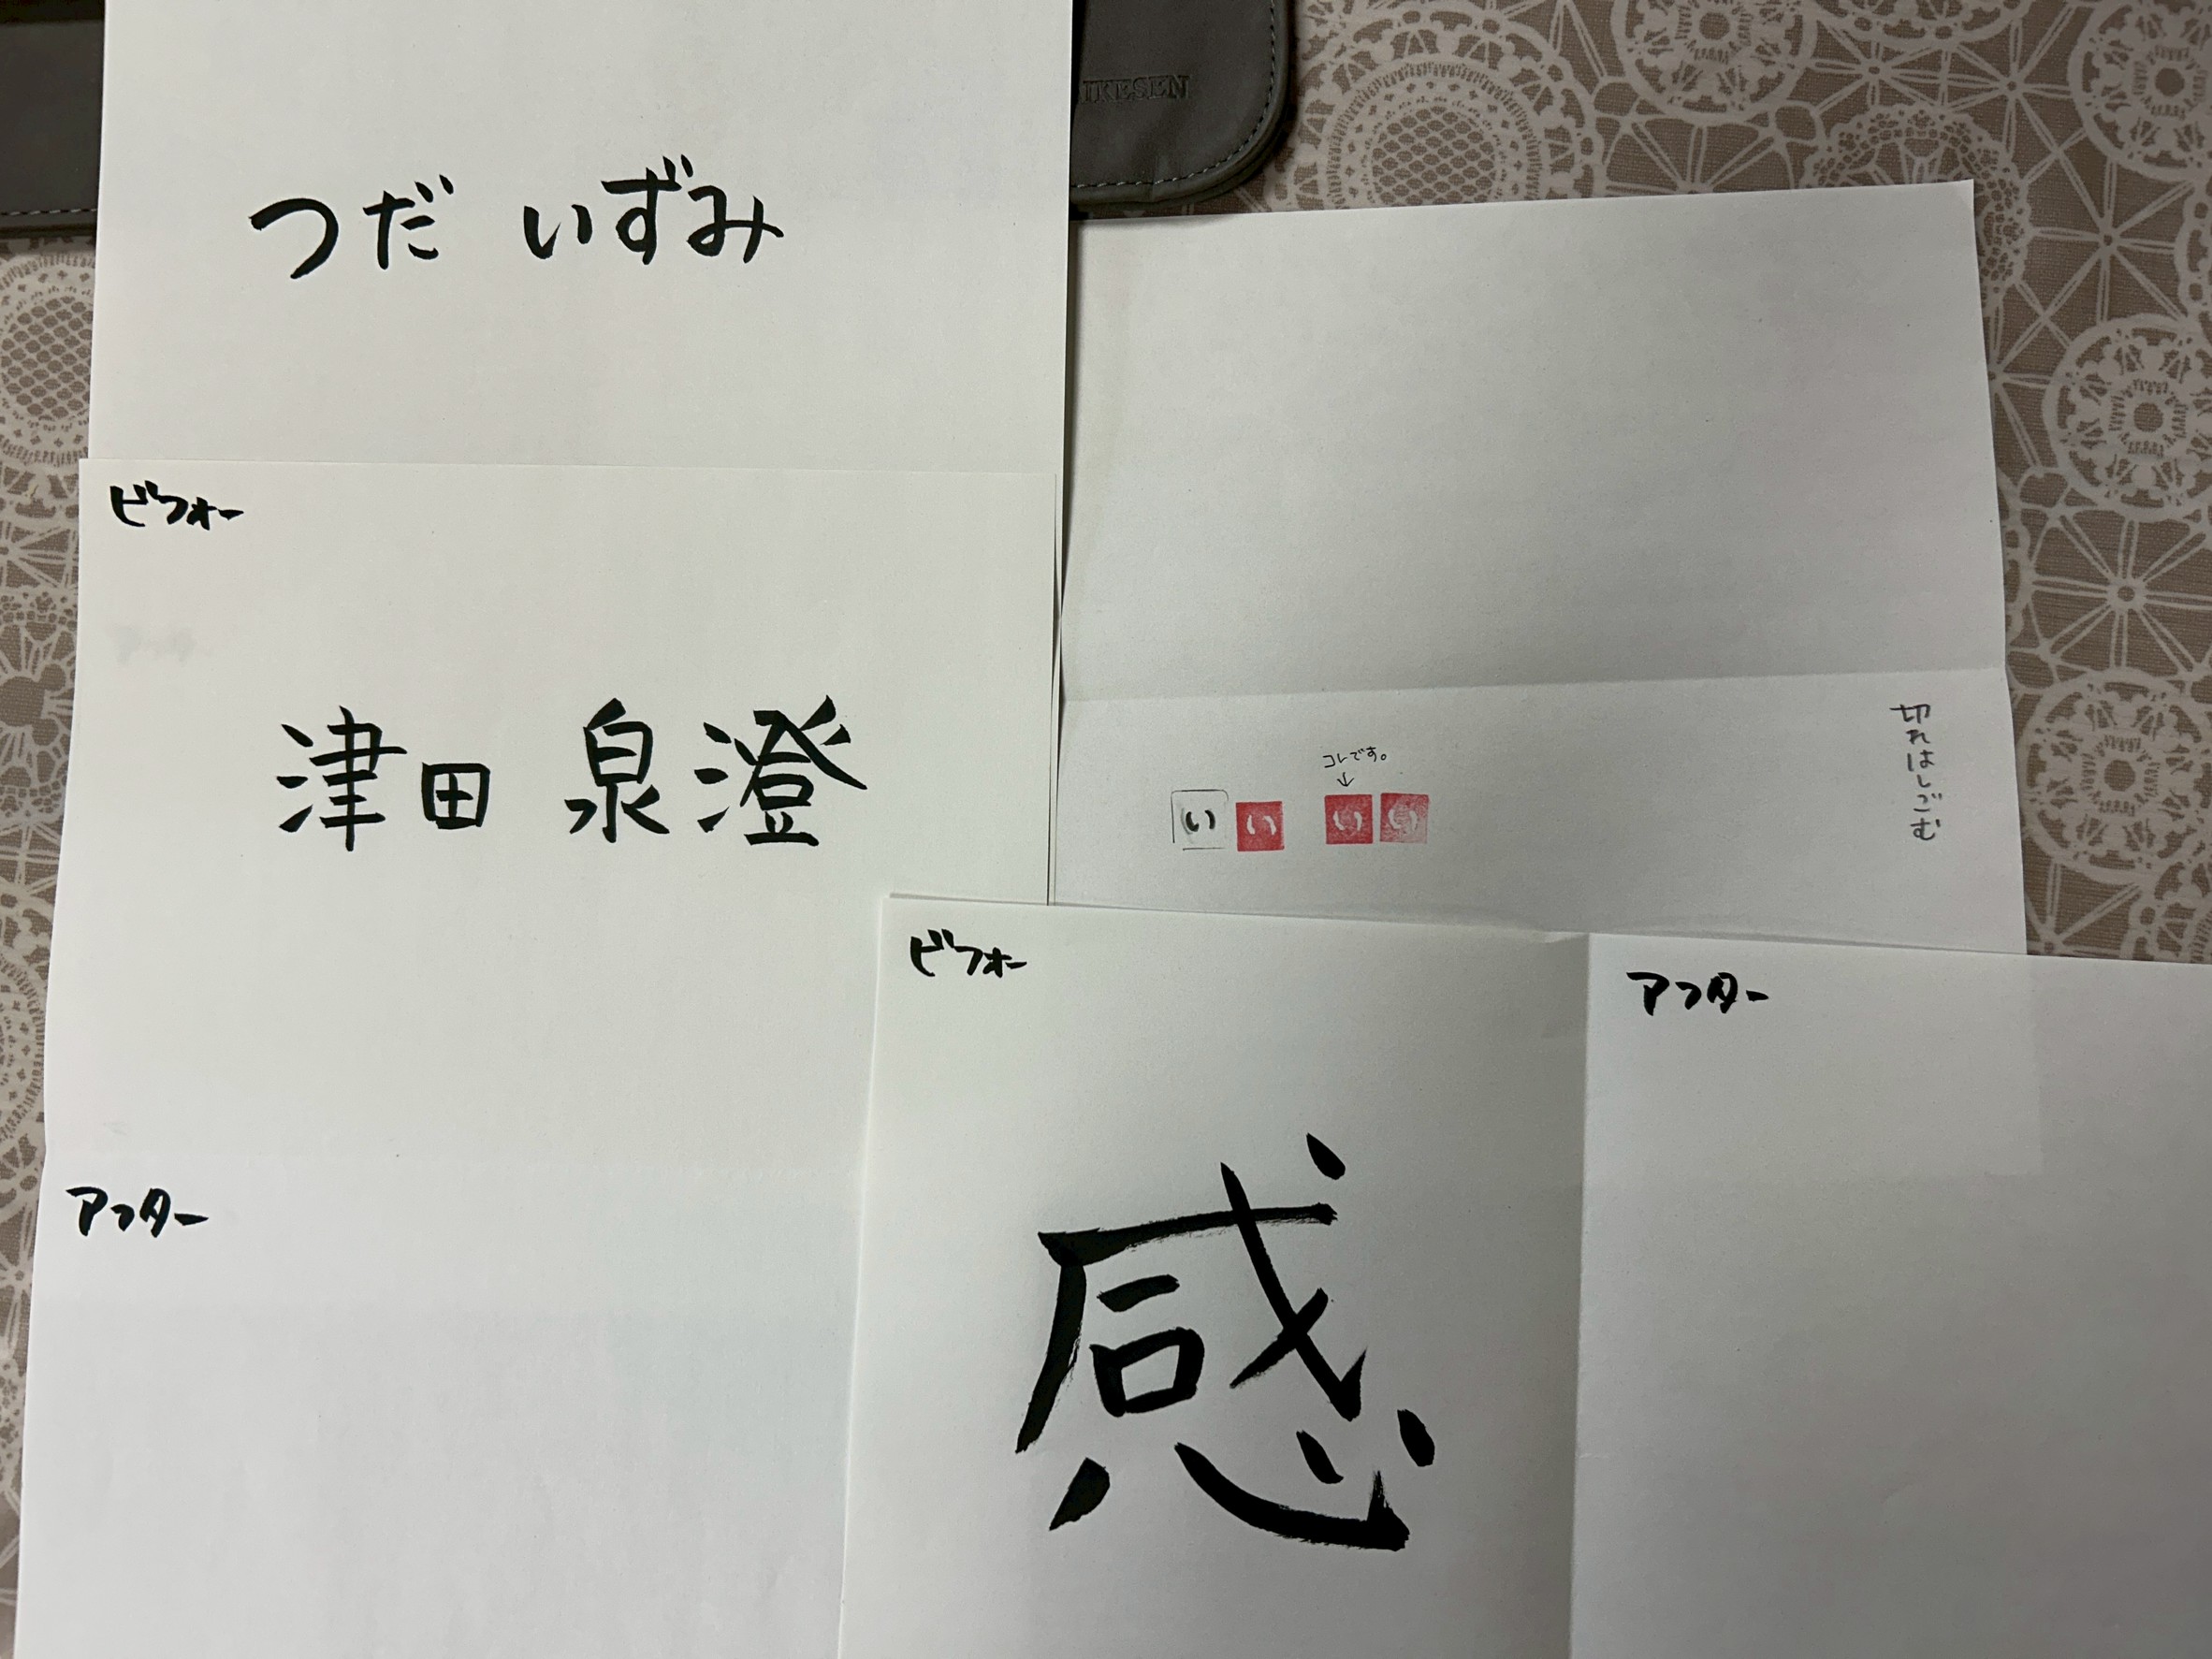 IKESEN
つだ いずみ
ビフォー
アフター
津田 泉澄
アフター
コレです。
↓
い い い い
切れはしごむ
ビフォー
感
アフター